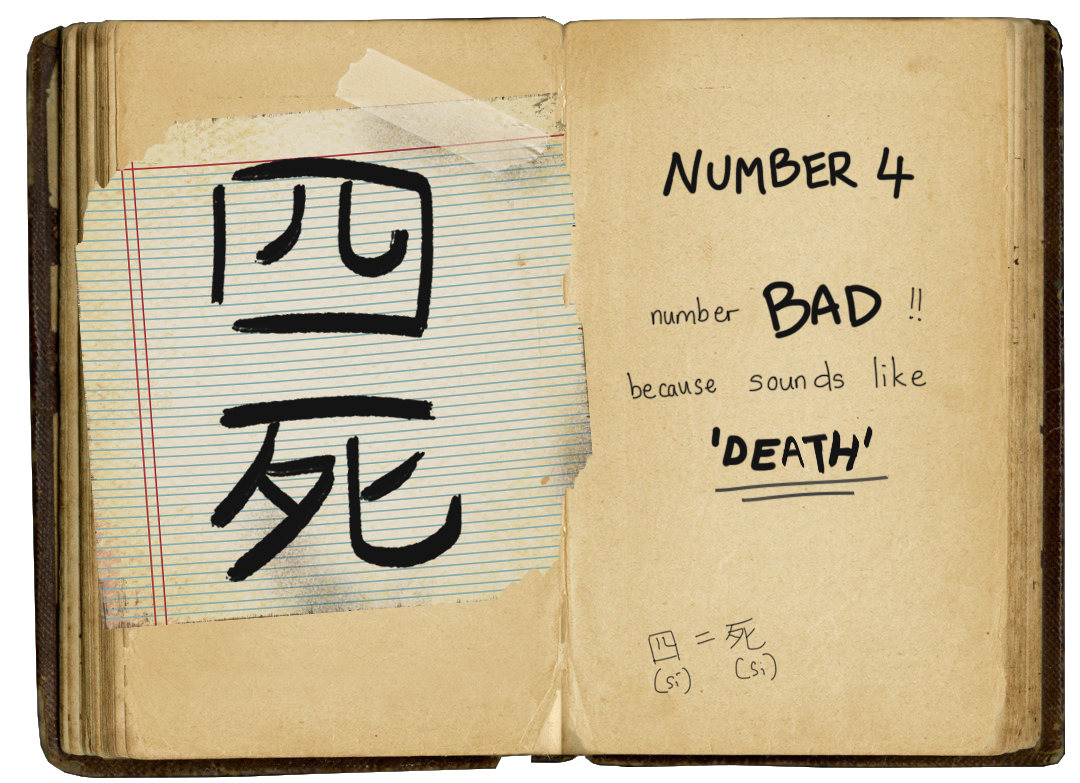 四
死
NUMBER 4
number BAD !!
because sounds like
'DEATH'
四 = 死
(sì) (sǐ)